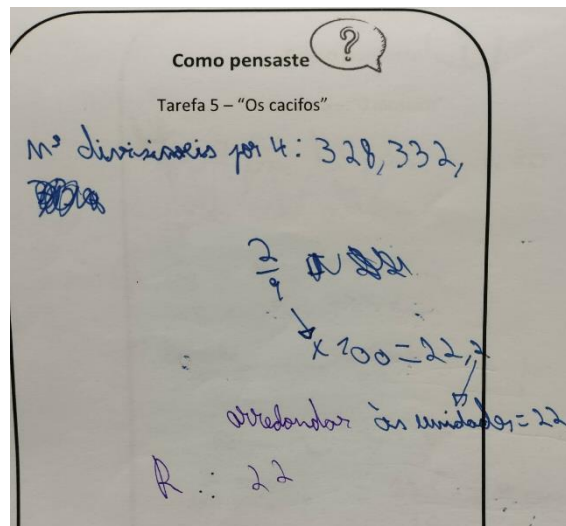 Como pensaste ?
Tarefa 5 – “Os cacifos”
Nº divisiveis por 4: 328, 332,
2/9
x 100 = 22,2
arredondar às unidades = 22
R.: 22